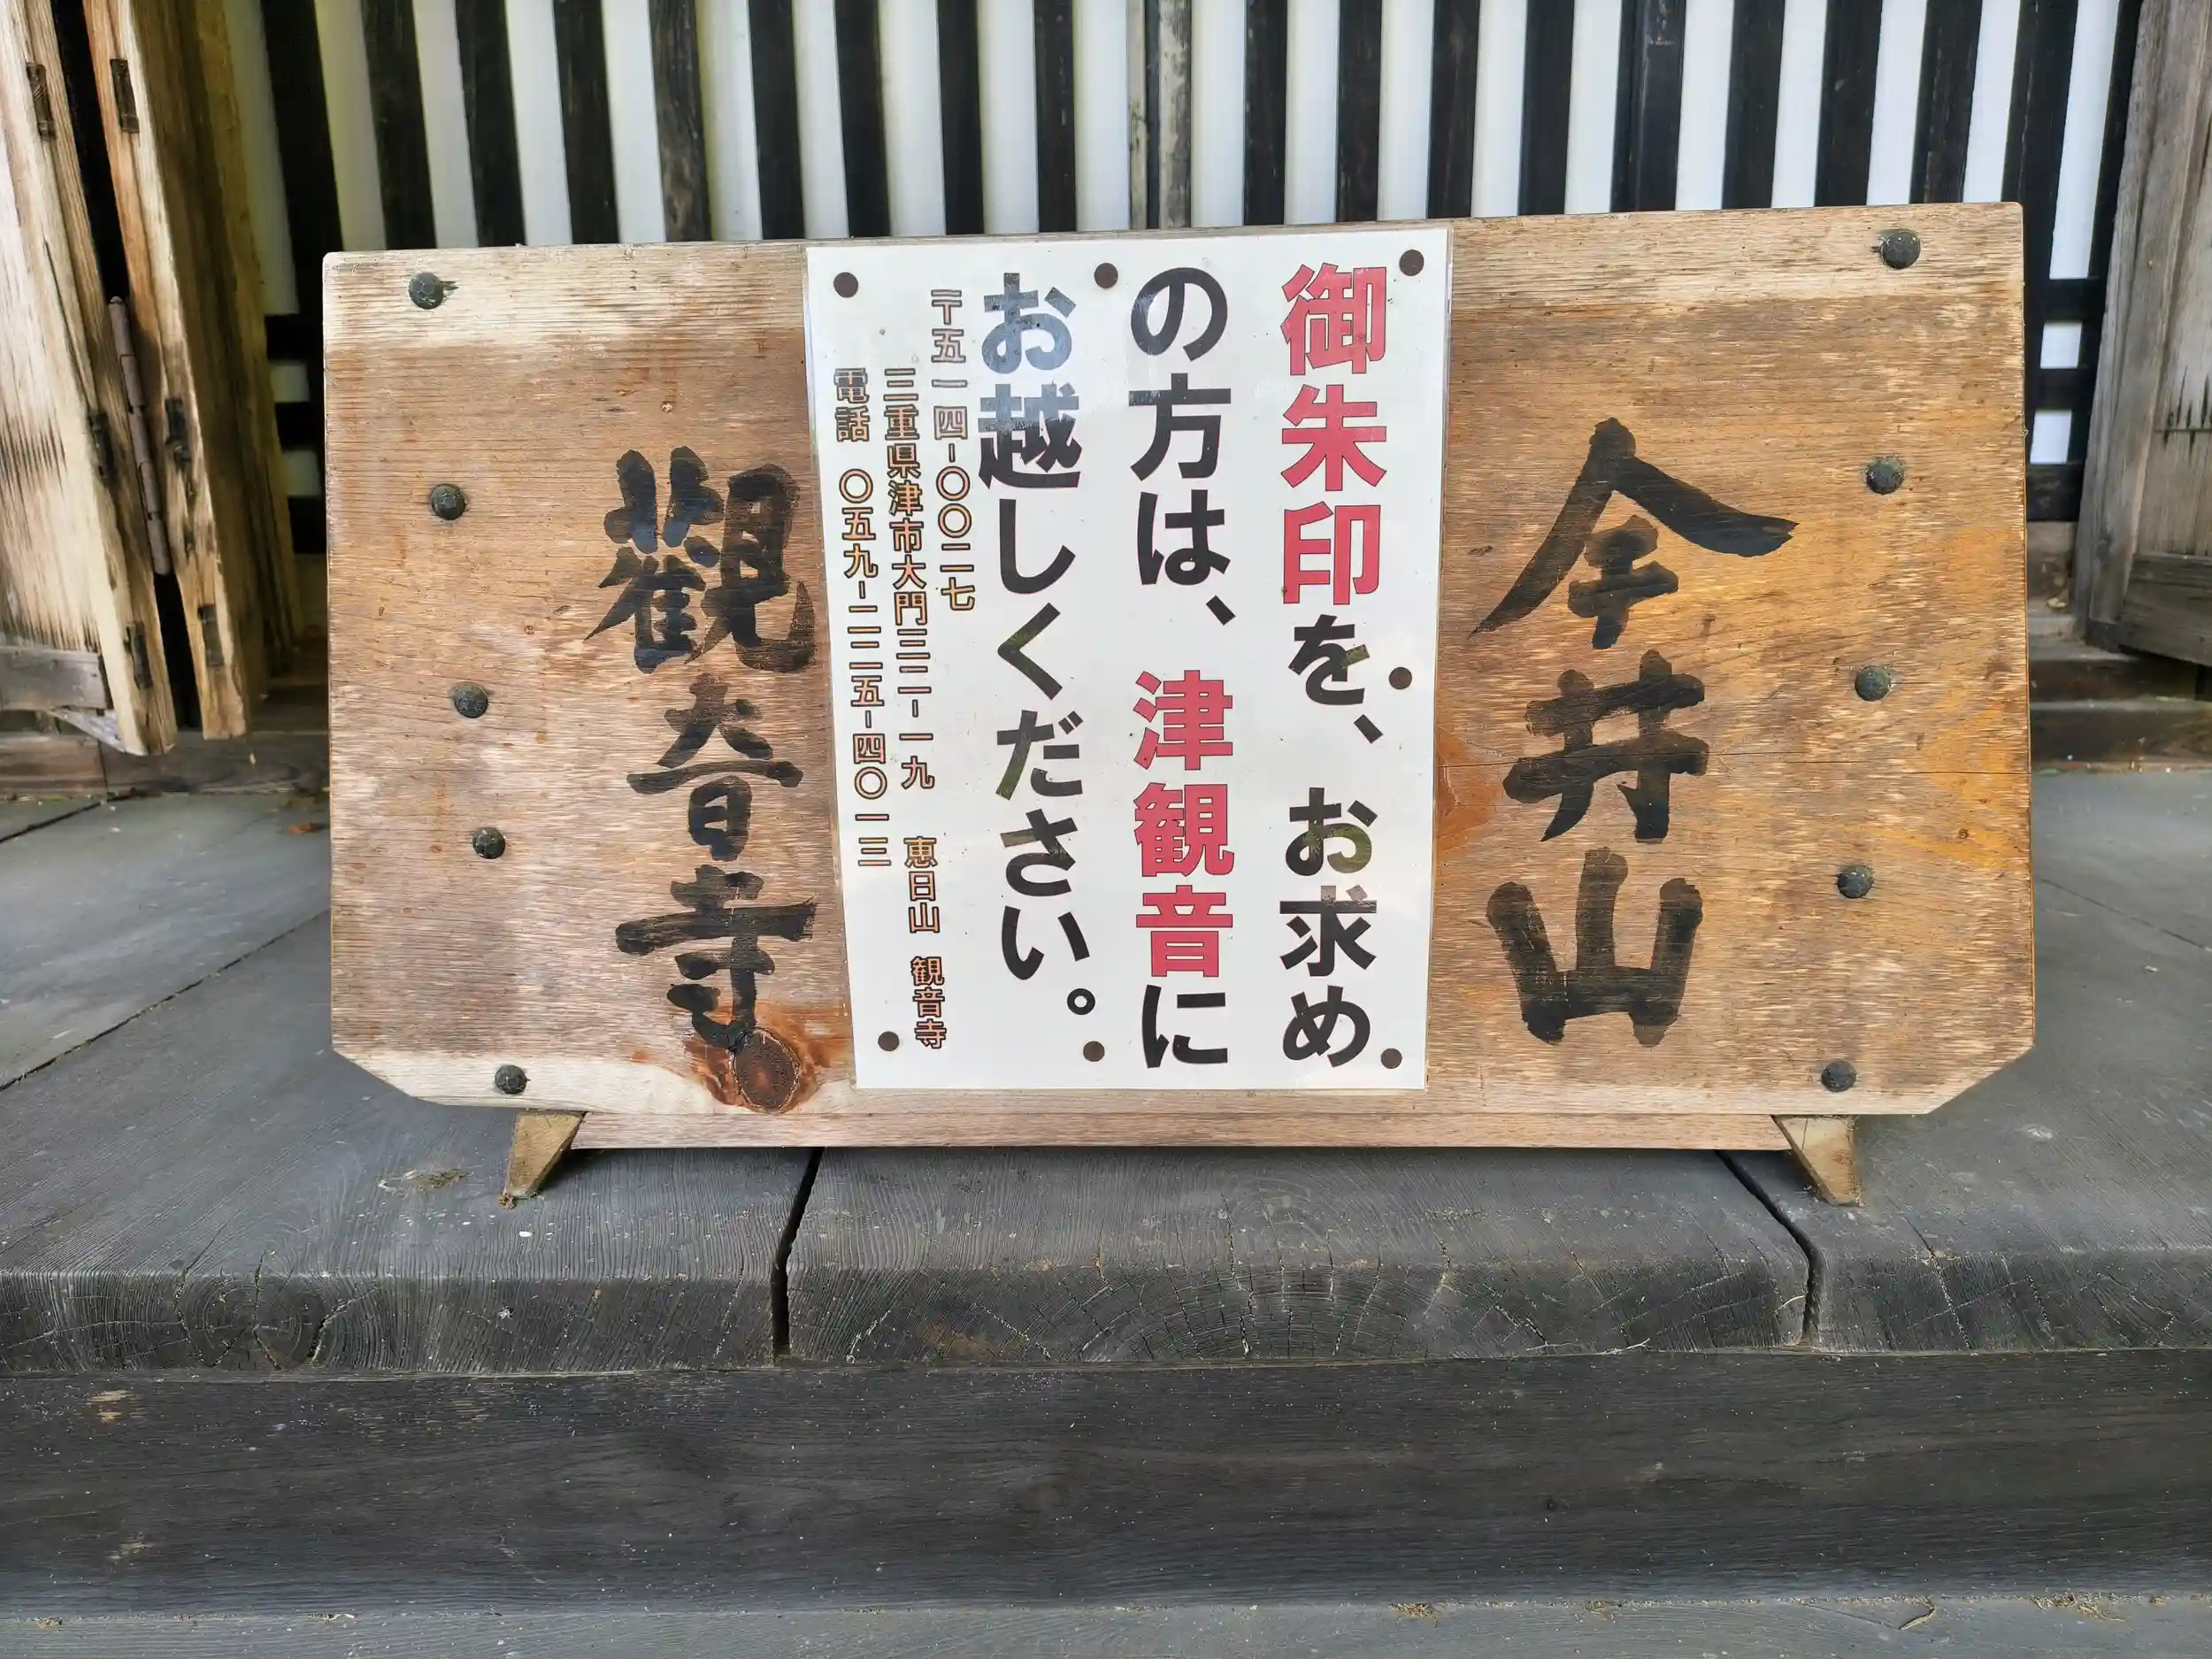 井山
御朱印を、お求め
の方は、津観音に
お越しください。
〒五一四-〇〇二七
三重県津市大門三二-一九 恵日山 観音寺
電話 〇五九-二二五-四〇一三
觀音寺